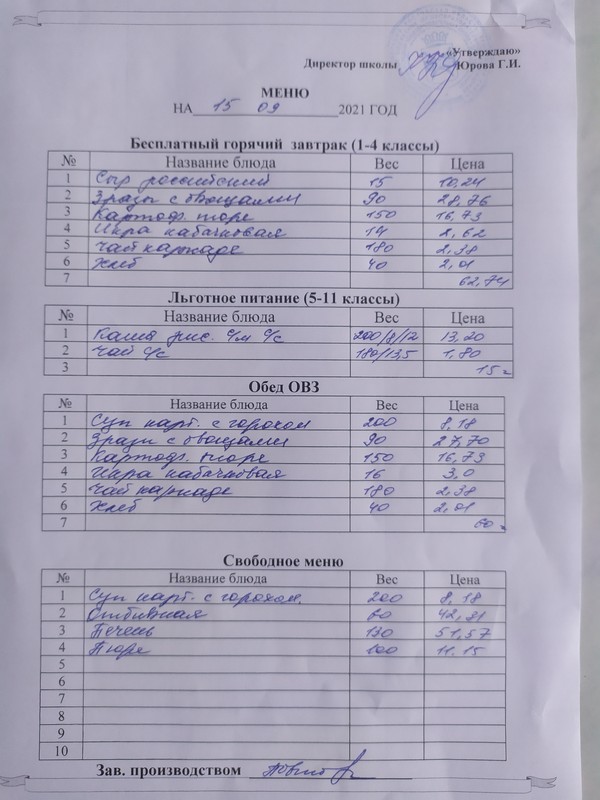 «Утверждаю»
Директор школы Юрова Г.И.
МЕНЮ
НА 15 09 2021 ГОД
Бесплатный горячий завтрак (1-4 классы)
№ Название блюда Вес Цена
1 Сыр российский 15 10,24
2 Зразы с овощами 90 28,76
3 Картоф. пюре 150 16,73
4 Икра кабачковая 14 2,62
5 Чай каркаде 180 2,38
6 Хлеб 40 2,01
7 62,74
Льготное питание (5-11 классы)
№ Название блюда Вес Цена
1 Каша рис. с/м с/с 200/8/12 13,20
2 Чай с/с 180/13,5 1,80
3 15
Обед ОВЗ
№ Название блюда Вес Цена
1 Суп карт. с горохом 200 8,18
2 Зразы с овощами 90 27,70
3 Картоф. пюре 150 16,73
4 Икра кабачковая 16 3,0
5 Чай каркаде 180 2,38
6 Хлеб 40 2,01
7 60
Свободное меню
№ Название блюда Вес Цена
1 Суп карт. с горохом. 200 8,18
2 Отбивная 60 42,81
3 Печень 130 51,57
4 Пюре 100 11.15
5
6
7
8
9
10
Зав. производством